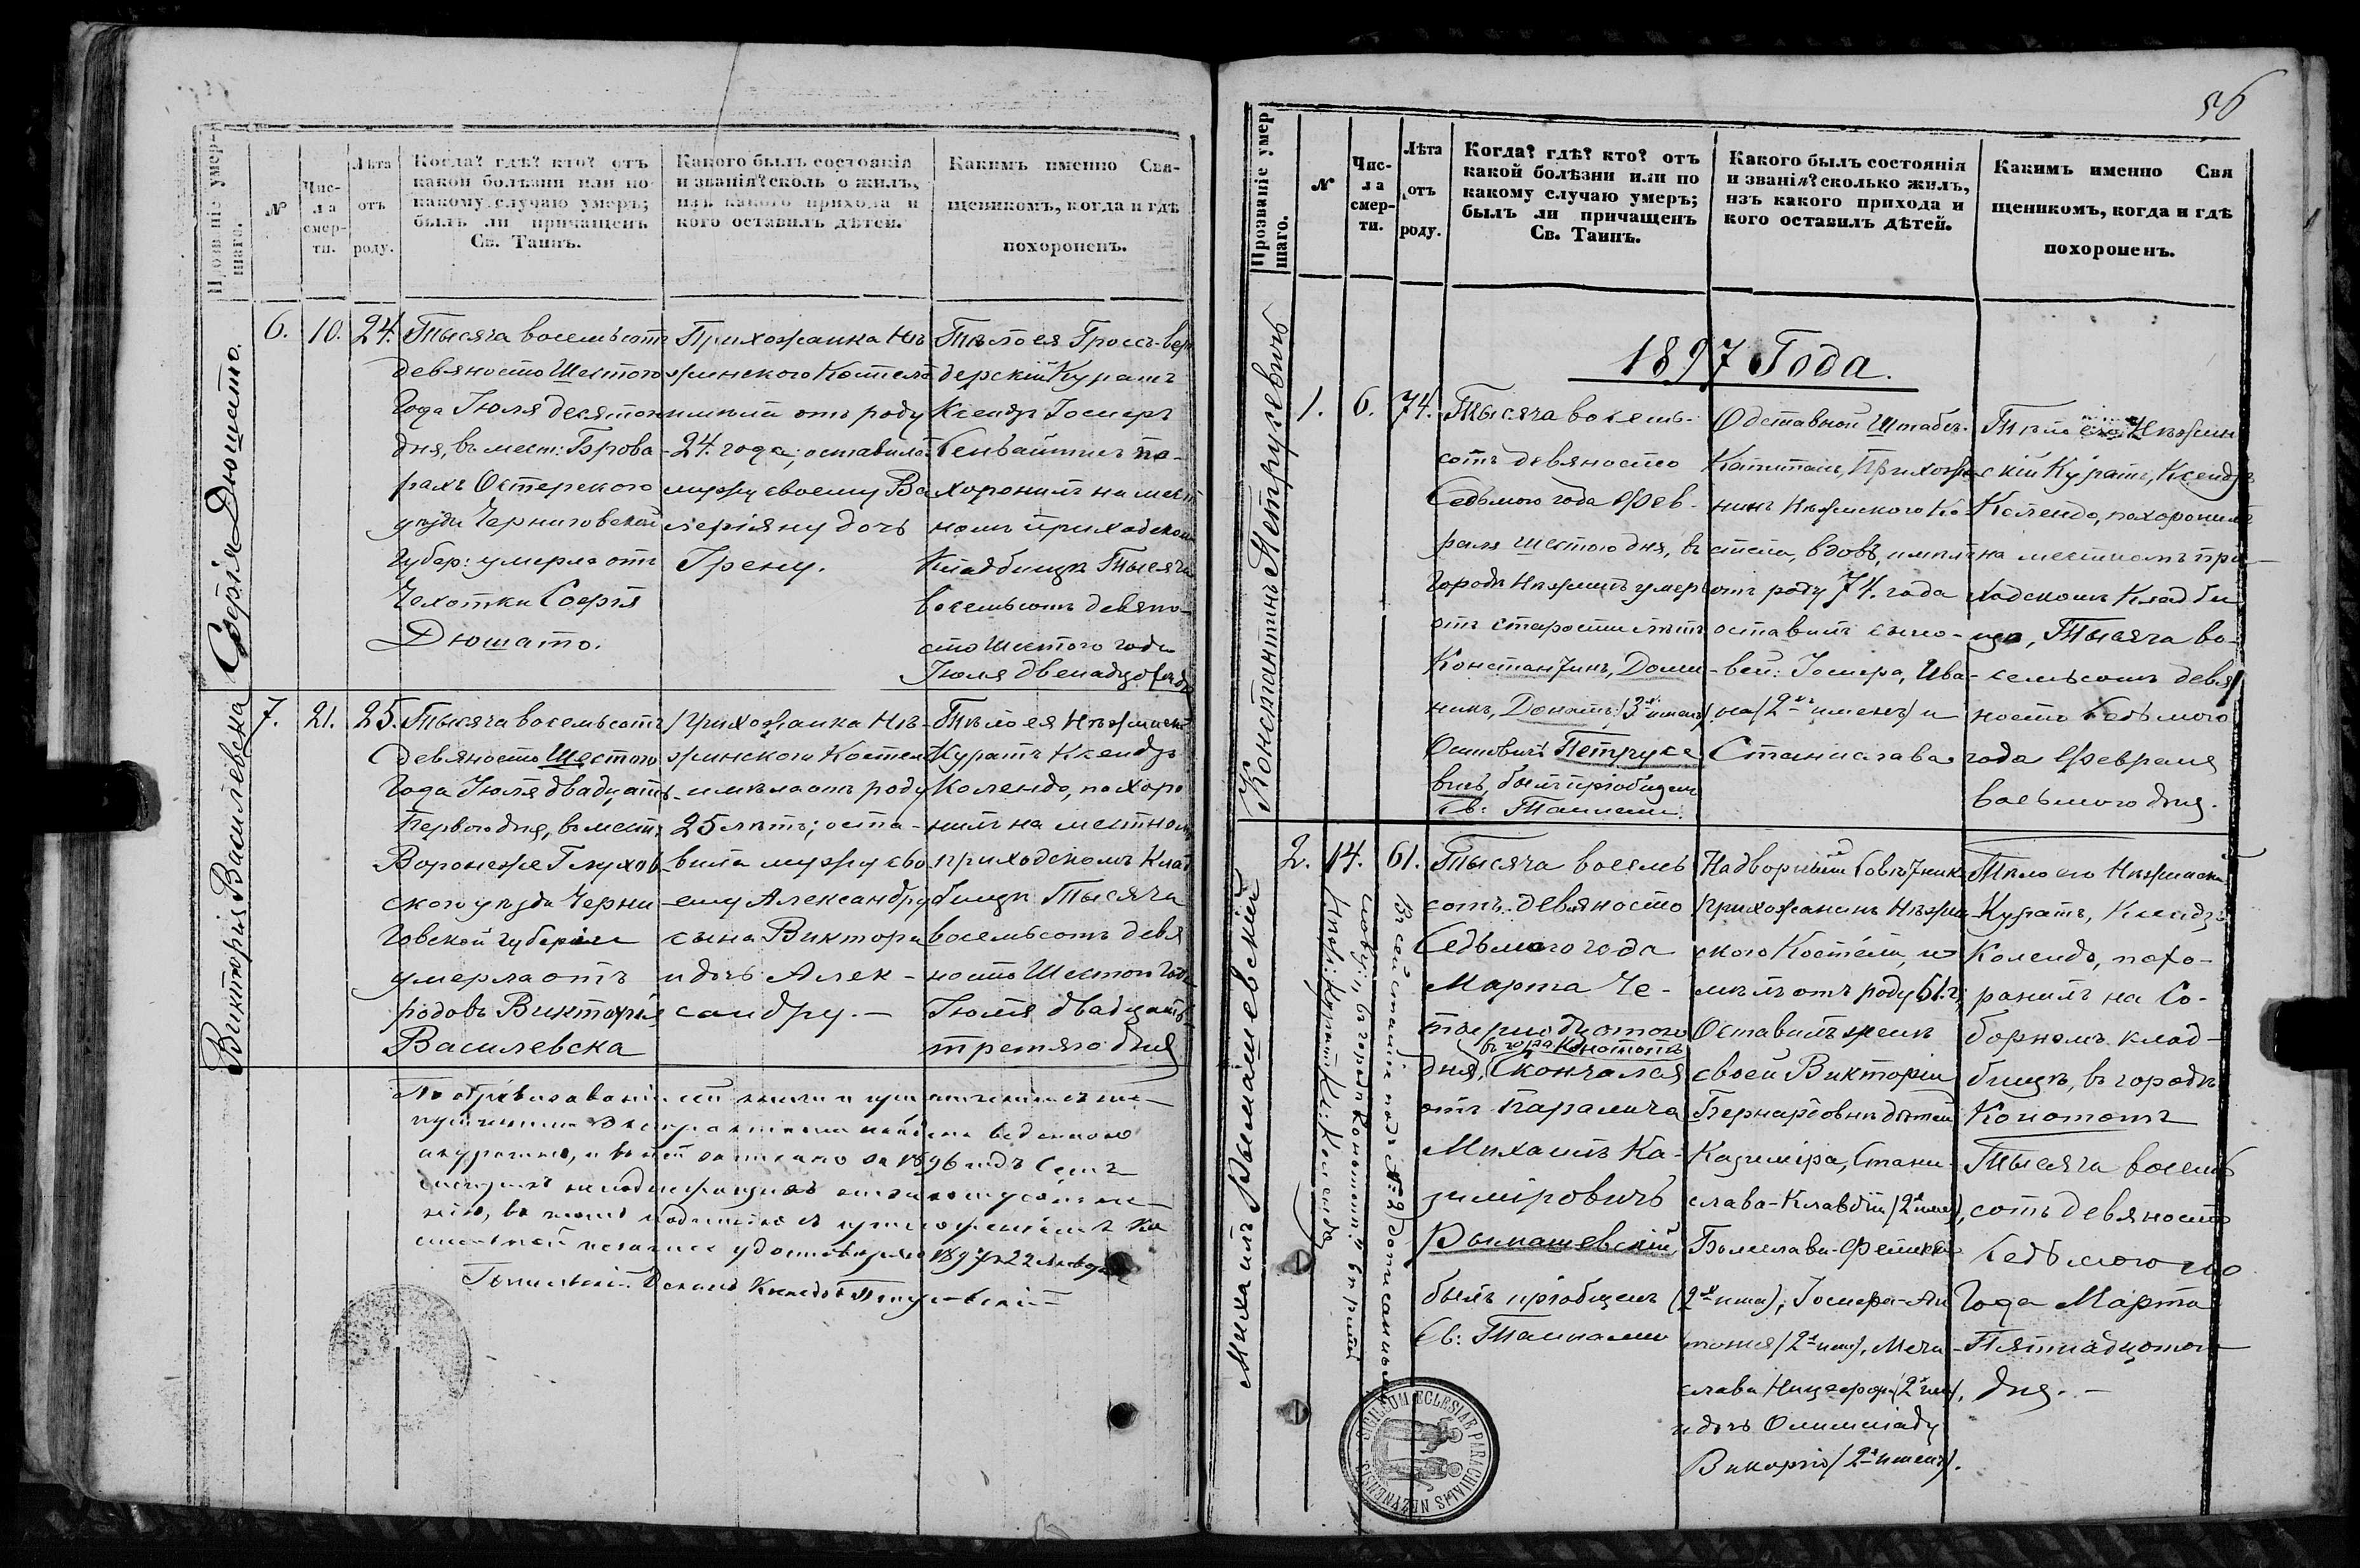 Прозваніе умер-
шаго.
№
Чис-
ла
смер-
ти.
Лѣта
отъ
роду.
Когда? гдѣ? кто? отъ
какой болѣзни или по
какому случаю умеръ;
былъ ли причащенъ
Св. Таинъ.
Какого былъ состоянія
и званія? сколь о жилъ,
изъ какого прихода и
кого оставилъ дѣтей.
Какимъ именно Свя-
щеникомъ, когда и гдѣ
похороненъ.
Софія Дюшато.
6.
10.
24.
Тысяча восемьсотъ
девяносто Шестого
Года Іюля десятого
дня, въ мест: Брова-
рахъ Остерского
уѣзда Черниговской
Губер: умерла отъ
Чахотки Софія
Дюшато.
Прихожанка Нѣ
жинского Костела
имѣла отъ роду
24. года; оставила
мужу своему Ва
леріяну дочь
Ирену.
Тѣло ея Гроссъ-вер
дерскій Куратъ
Ксендзъ Іосифъ
по-
хоронилъ на мест
номъ приходском
Кладбищѣ Тысяча
восемьсотъ девяно-
сто Шестого года
Іюля двенадцатого
Викторія Василевска
7.
21.
25.
Тысяча восемьсотъ
девяносто Шестого
Года Іюля двадцать
Перваго дня, въ мест:
Воронежѣ Глухов
ского уѣзда Черни
говской губерніи
умерла отъ
родовъ Викторія
Василевска
Прихожанка Нѣ-
жинского Костела
имѣла отъ роду
25 лѣтъ; оста-
вила мужу сво
ему Александру
сына Виктора
и дочь Алек-
сандру. —
Тѣло ея Нѣжинск
Куратъ Ксендзъ
Колендо, похоро
нилъ на местном
приходскомъ Клад
бищѣ Тысяча
восемьсотъ девя
носто Шестого Года
Іюля двадцать
третяго дня
56
Прозваніе умер
шаго.
№
Чис-
ла
смер-
ти.
Лѣта
отъ
роду.
Когда? гдѣ? кто? отъ
какой болѣзни или по
какому случаю умеръ;
былъ ли причащенъ
Св. Таинъ.
Какого былъ состоянія
и званія? сколько жилъ,
изъ какого прихода и
кого оставилъ дѣтей.
Какимъ именно Свя
щеникомъ, когда и гдѣ
похороненъ.
1897 Года.
Константинъ Петрусевичъ
1.
6.
74.
Тысяча восемь-
сотъ девяносто
Седьмого года Фев-
раля шестого дня, въ
городѣ Нѣжинѣ умеръ
отъ старости лѣтъ
Константинъ, Доми-
никъ, Донатъ (3хъ именъ)
Осиповичъ Петрусе
вичъ, былъ пріобщенъ
Св: Таинами.
Отставной Штабсъ-
Капитанъ, Прихожа
нинъ Нѣжинского Ко
стела, вдовъ, имѣлъ
отъ роду 74. года
оставилъ сыно-
вей: Іосифа, Ива-
на (2хъ именъ) и
Станислава
Тѣло его Нѣжин
скій Куратъ, Ксендзъ
Колендо, похоронилъ
на местномъ при-
ходскомъ Кладби
щѣ, Тысяча во-
семьсотъ девя
носто Седьмого
года Февраля
восьмого дня.
Михаилъ Рымашевскій
2.
14.
61.
Тысяча восемь
сотъ девяносто
Седьмого года
Марта Че-
тырнадцатого
въ городѣ Конотопѣ
дня, Скончался
отъ Паралича
Михаилъ Ка-
зиміровичъ
Рымашевскій,
былъ пріобщенъ
Св: Таинами
Надворный Совѣтник
Прихожанинъ Нѣжин
ского Костела, и
мѣлъ отъ роду 61. г.
Оставилъ женѣ
своей Викторіи
Бернардовнѣ дѣтей
Казиміра, Стани-
слава-Клавдія (2 имя),
Болеслава-Феликса
(2е имя), Іосифа-Ан
тонія (2е имя), Мечи-
слава (2е имя),
и дочь Олимпіаду
Викторію (2е именъ).
Тѣло его Нѣжинскій
Куратъ, Ксендзъ
Колендо, похо-
ранилъ на Со-
борномъ клад-
бищѣ, въ городѣ
Конотопѣ
Тысяча восемь
сотъ девяносто
Седьмого
Года Марта
Пятнадцатого
дня. —
Въ сей статіи подъ №: 2) дописаннымъ
словамъ: "въ городѣ Конотопѣ" вѣрить
Кс: Колендо
SIGILLUM ECLESIAE PARACHIALIS NEZYNENSIS